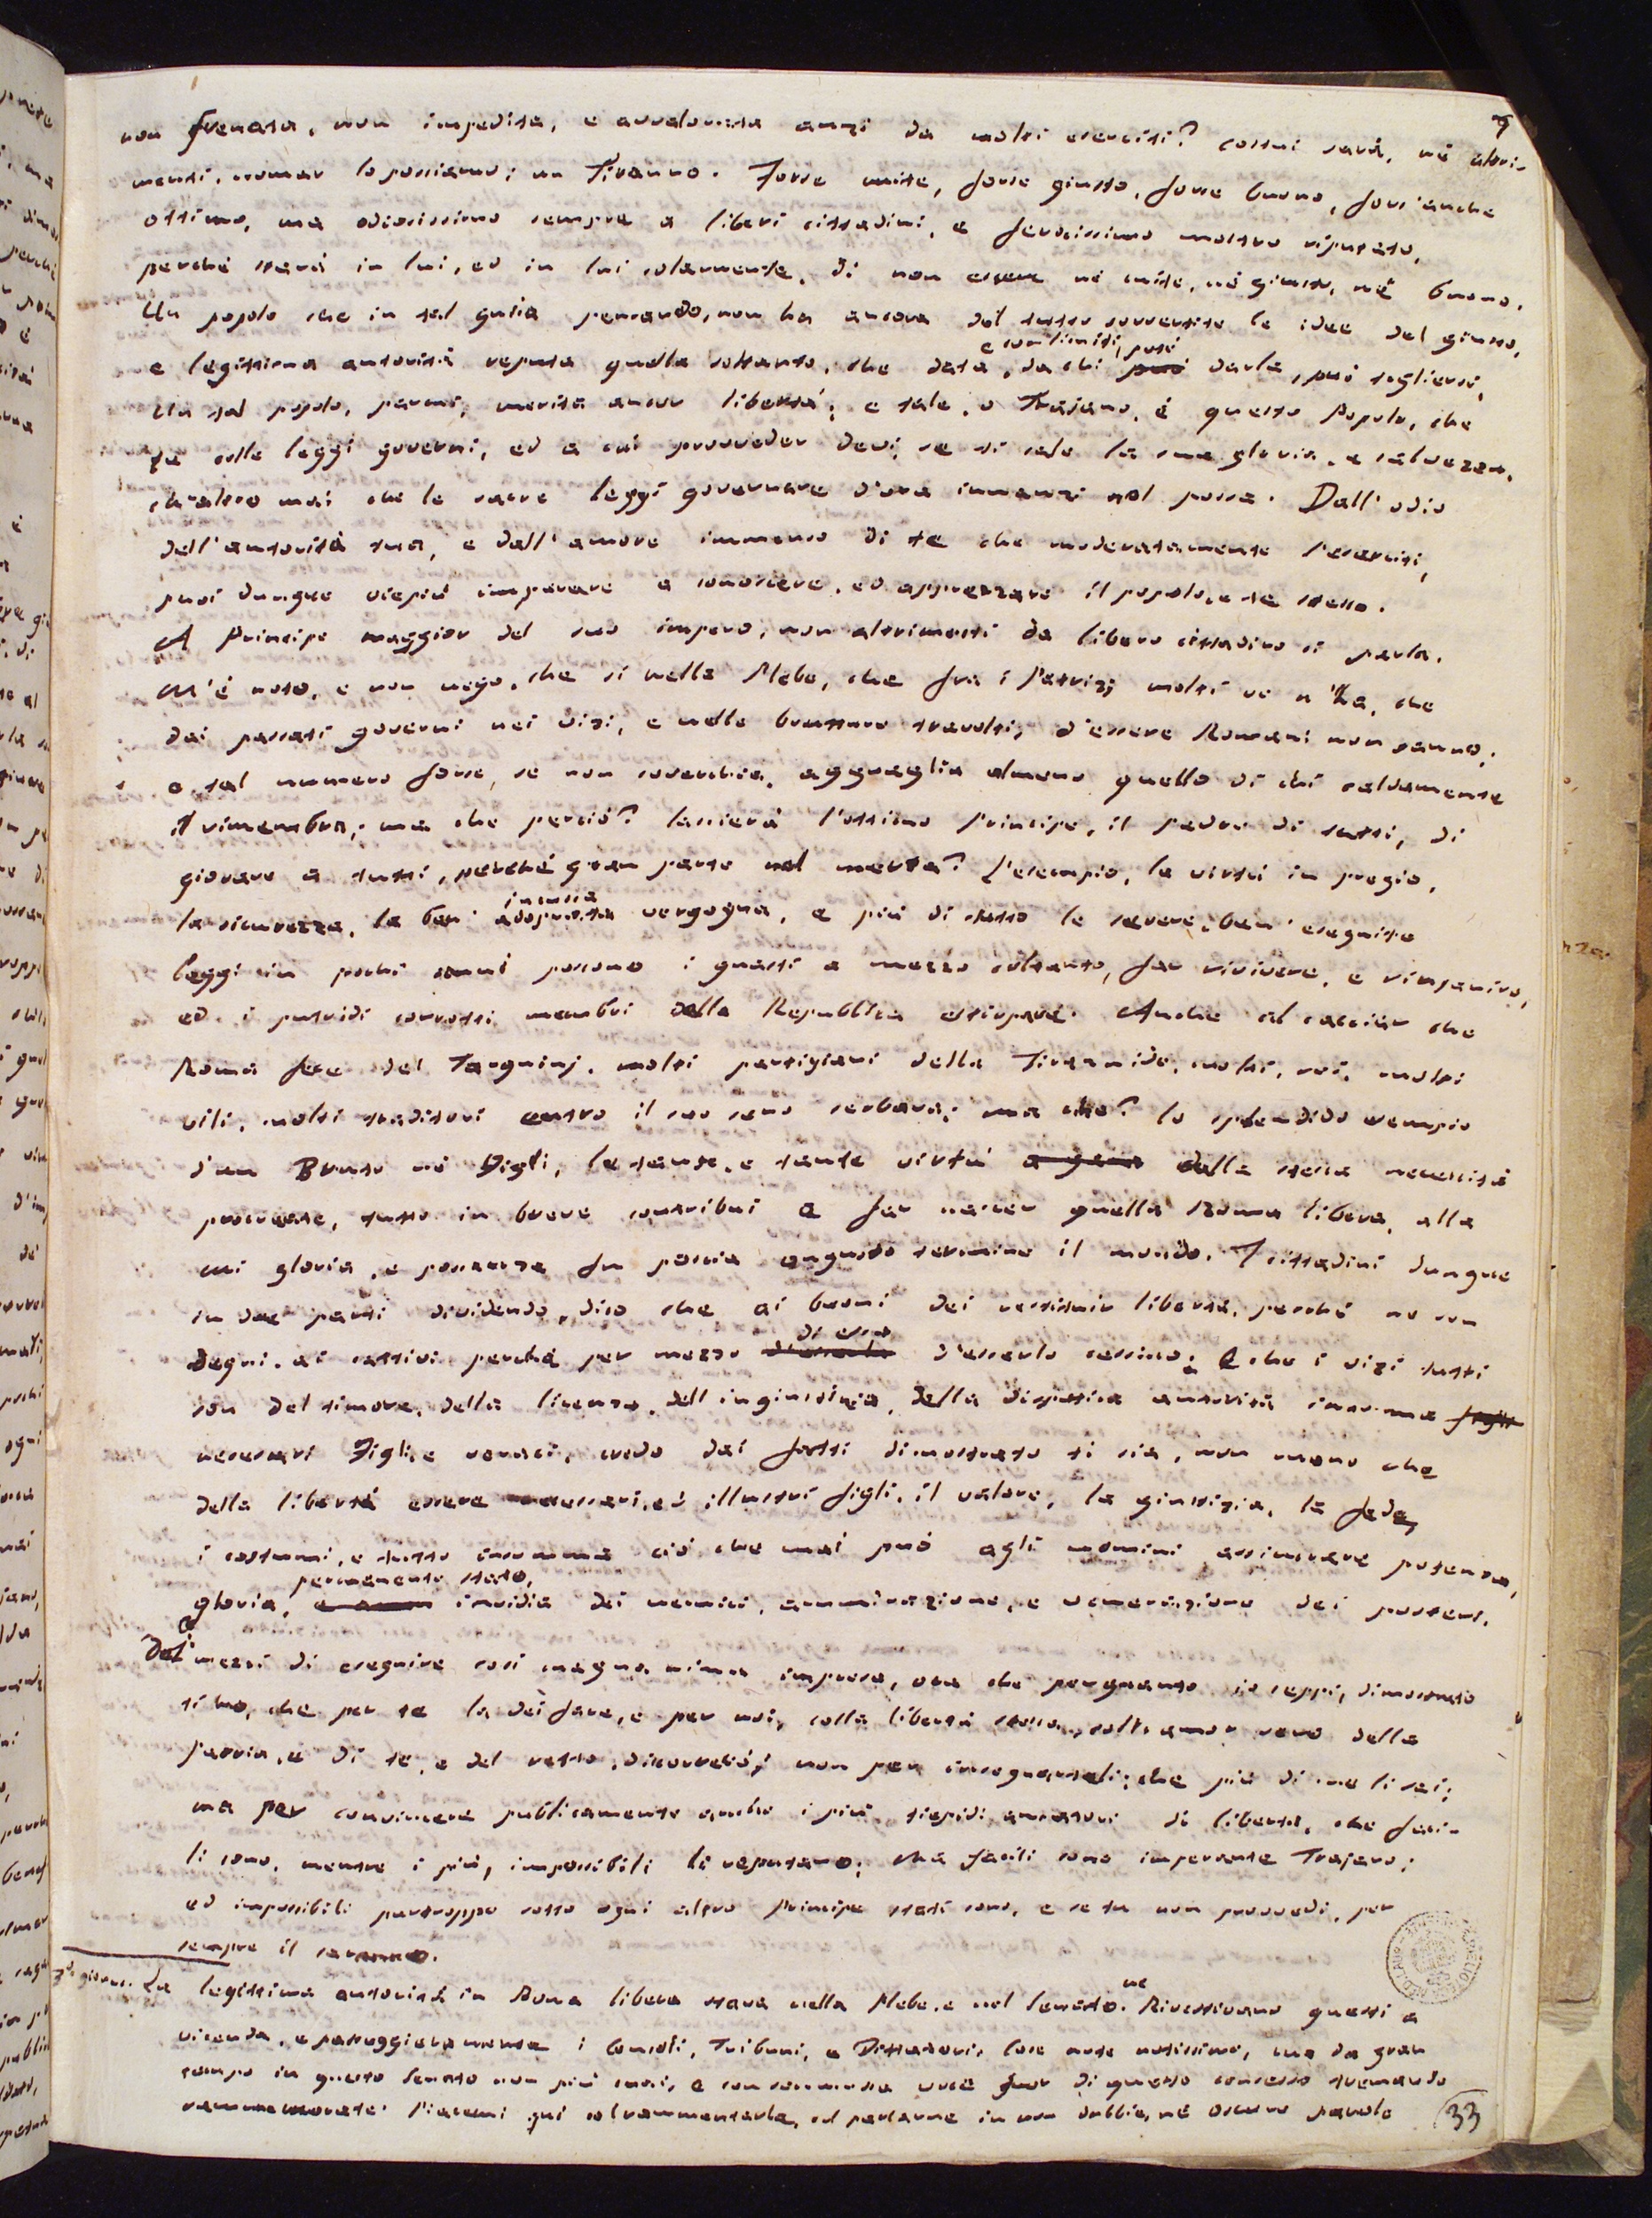 7
non frenata, non impedita, e avvalorata anzi da molti eserciti? costui sarà, né altri-
menti nomar lo possiamo; un Tiranno. Forse mite, forse giusto, forse buono, fors'anche
ottimo, ma odiosissimo sempre a liberi cittadini, e ferocissimo mostro riputato,
perché starà in lui, ed in lui solamente, di non essere né mite, né giusto, né buono.
Un popolo che in tal guisa pensando, non ha ancora del tutto sovvertite le idee del giusto,
e con limiti, poté
e legittima autorità reputa quella soltanto, che data, da chi può darla, può togliersi,
Un tal popolo, parmi, merita ancor libertà; e tale, o Trajano, è questo Popolo, che
tu colle leggi governi, ed a cui provveder devi, se ti cale la sua gloria, e salvezza,
ch'altro mai che le sacre leggi governare d'ora innanzi nol possa. Dall'odio
dell'autorità tua, e dall'amore immenso di te che moderatamente l'eserciti,
puoi dunque viepiù imparare a conoscere, ed apprezzare il popolo, e te stesso.
A Principe maggior del suo impero, non altrimenti da libero cittadino si parla.
M'è noto, e non nego, che sì nella Plebe, che fra i Patrizj molti ve n'ha, che
dai passati governi nei vizi, e nelle brutture travolti, d'essere Romani non sanno;
e tal numero forse, se non soverchia, agguaglia almeno quello di chi caldamente
il rimembra; ma che perciò? lascierà l'ottimo Principe, il padre di tutti, di
giovare a tutti, perché gran parte nol merta? L'esempio, le virtù in pregio,
incussa
la sicurezza, la ben adoprata vergogna, e più di tutto le severe, ben eseguite
leggi in pochi anni possono i guasti a mezzo soltanto, far rivivere, e rinsanire,
ed i putridi corrotti membri della Repubblica estirpare. Anche al cacciar che
Roma fece dei Tarquinj, molti partigiani della Tirannide, molti rei, molti
vili, molti traditori entro il suo seno serbava; ma che? lo splendido esempio
d'un Bruto né Figli, le tante, e tante virtù a gara dalla stessa necessità
procreate, tutto in breve contribuì a far nascer quella Roma libera, alla
cui gloria, e possanza fu poscia angusto termine il mondo. I cittadini dunque
in due parti dividendo, dico che ai buoni dei restituir libertà, perché ne son
di essa
degni. ai cattivi perché per mezzo d'esserla d'esserlo cessino; E che i vizi tutti
son del timore, della licenza, dell'ingiustizia, della dispotica autorità insomma figli
necessari Figli, e veraci, credo dai fatti dimostrato ti sia, non meno che
della libertà essere necessari, ed illustri figli, il valore, la giustizia, la fede,
i costumi, e tutto insomma ciò che mai può agli uomini assicurare potenza,
permanente stato,
gloria, invidia dei nemici, ammirazione, e venerazione dei posteri.
Dei mezzi di eseguire così magnanima impresa, ora che perquanto io seppi, dimostrato
ti ho, che per te la dei fare, e per noi, colla libertà stessa, coll'amor vero della
patria, e di te, e del retto, discorrerò; non per insegnarteli; che più di me li sai;
ma per convincere publicamente anche i più tiepidi amatori di libertà, che faci-
li sono, mentre i più, impossibili li reputano; Ma facili sono imperante Trajano;
ed impossibili purtroppo sotto ogni altro Principe stati sono, e se tu non provvedi, per
sempre il saranno.
3° giorno. La legittima autorità in Roma libera stava nella Plebe, e nel Senato. Rivestivano questi a
ne
vicenda, e passeggieramente i Consoli, Tribuni, e Dittatori, Cose note notissime, ma da gran
tempo in questo Senato non più mai, e con sommessa voce fuor di questo consesso tremando
rammemorate. Piacemi qui rammentarle, ed parlarne in non dubbie, né oscure parole
33